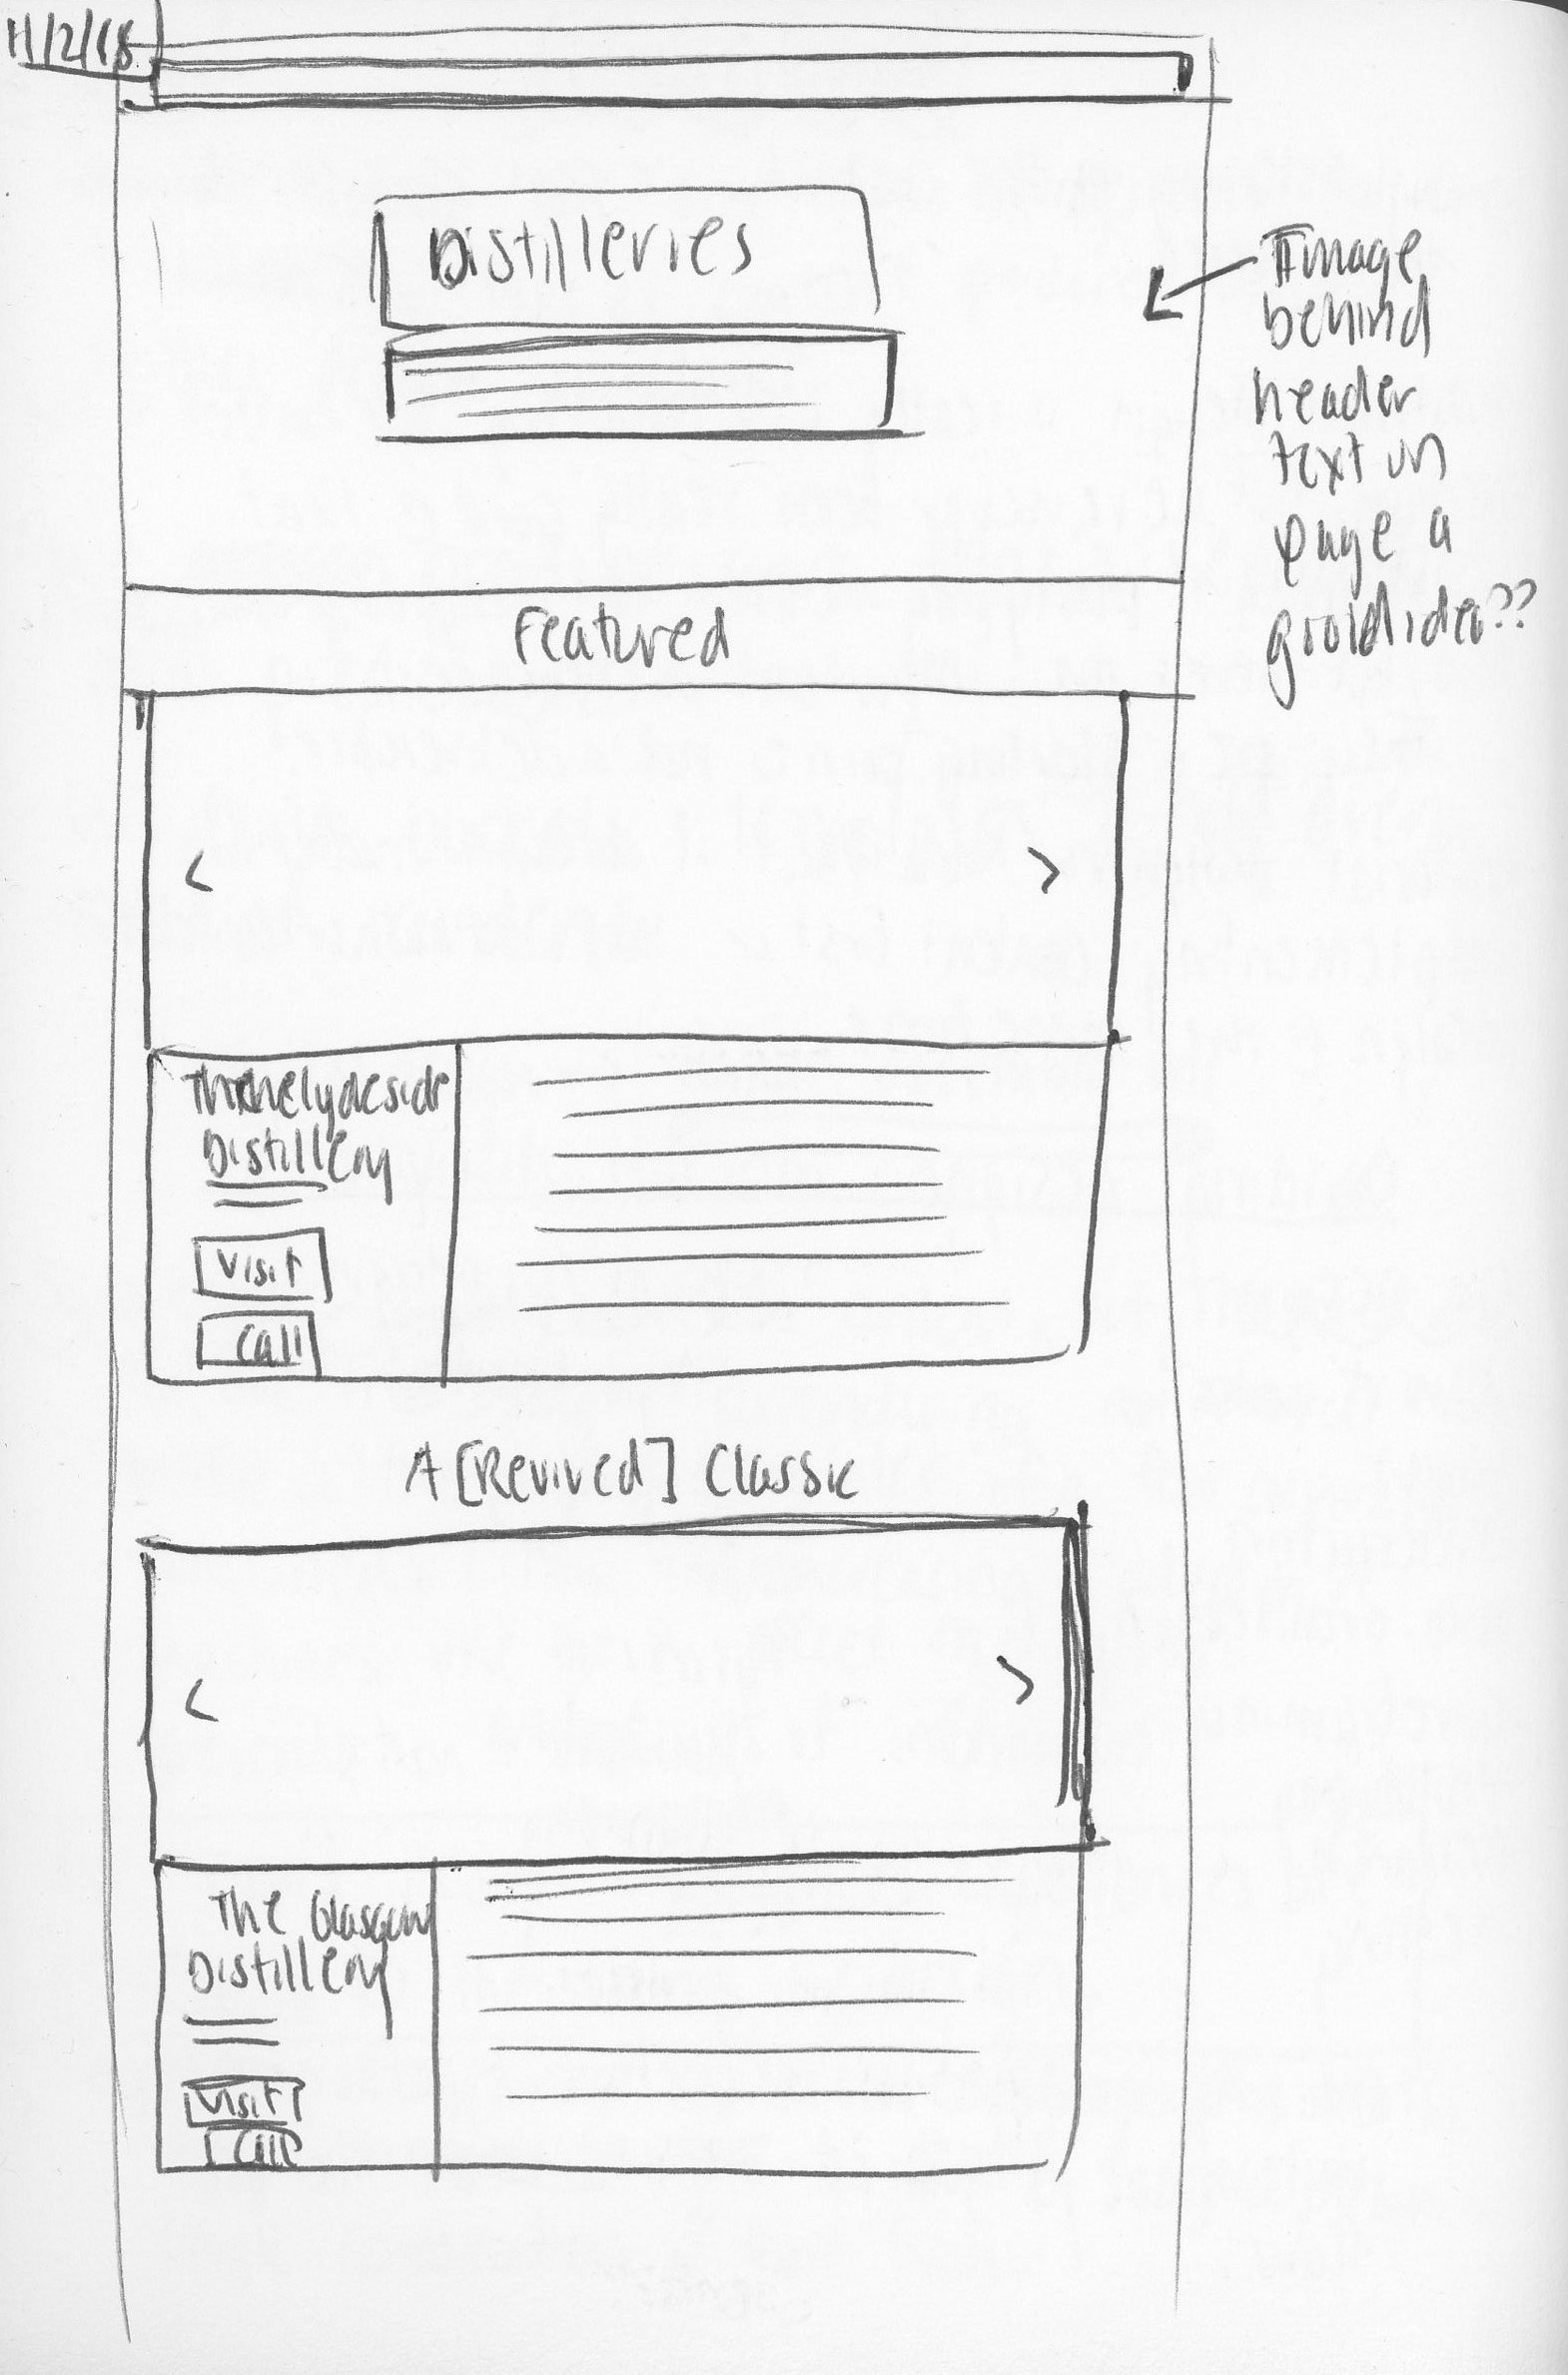 11/2/18
Distilleries
Image
behind
header
text on
page a
good idea??
Featured
<
>
The Clydeside
Distillery
Visit
Call
A [Revived] Classic
<
>
The Glasgow
Distillery
Visit
Call